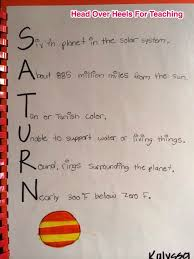 Head Over Heels For Teaching
Sixth planet in the solar system.
About 885 million miles from the sun.
Tan or Tanish color.
Unable to support water or living things.
Round, rings surrounding the planet.
Nearly 300°F below zero F.
Kalyssa